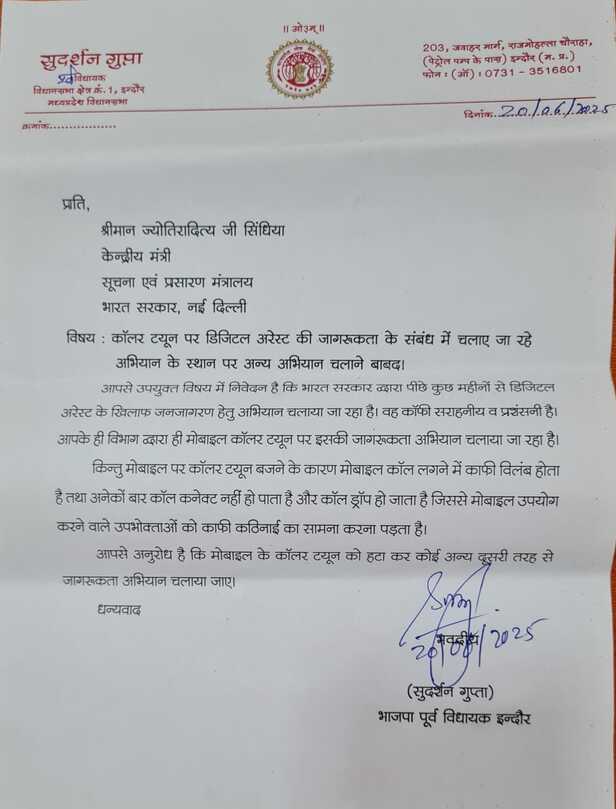 ॥ ओ३म् ॥
सुदर्शन गुप्ता
पूर्व विधायक
विधानसभा क्षेत्र क्रं. 1, इन्दौर
मध्यप्रदेश विधानसभा
203, जवाहर मार्ग, राजमोहल्ला चौराहा,
(पेट्रोल पम्प के पास) इन्दौर (म. प्र.)
फोन : (ऑ) : 0731 - 3516801
क्रमांक..................
दिनांक..20/06/2025
प्रति,
श्रीमान ज्योतिरादित्य जी सिंधिया
केन्द्रीय मंत्री
सूचना एवं प्रसारण मंत्रालय
भारत सरकार, नई दिल्ली
विषय : कॉलर टयून पर डिजिटल अरेस्ट की जागरूकता के संबंध में चलाए जा रहे
अभियान के स्थान पर अन्य अभियान चलाने बाबद।
आपसे उपयुक्त विषय में निवेदन है कि भारत सरकार द्वारा पीछे कुछ महीनों से डिजिटल
अरेस्ट के खिलाफ जनजागरण हेतु अभियान चलाया जा रहा है। वह कॉफी सराहनीय व प्रशंसनी है।
आपके ही विभाग द्वारा ही मोबाइल कॉलर टयून पर इसकी जागरूकता अभियान चलाया जा रहा है।
किन्तु मोबाइल पर कॉलर टयून बजने के कारण मोबाइल कॉल लगने में काफी विलंब होता
है तथा अनेकों बार कॉल कनेक्ट नहीं हो पाता है और कॉल ड्रॉप हो जाता है जिससे मोबाइल उपयोग
करने वाले उपभोक्ताओं को काफी कठिनाई का सामना करना पड़ता है।
आपसे अनुरोध है कि मोबाइल के कॉलर टयून को हटा कर कोई अन्य दूसरी तरह से
जागरूकता अभियान चलाया जाए।
धन्यवाद
भवदीय
20/06/2025
(सुदर्शन गुप्ता)
भाजपा पूर्व विधायक इन्दौर